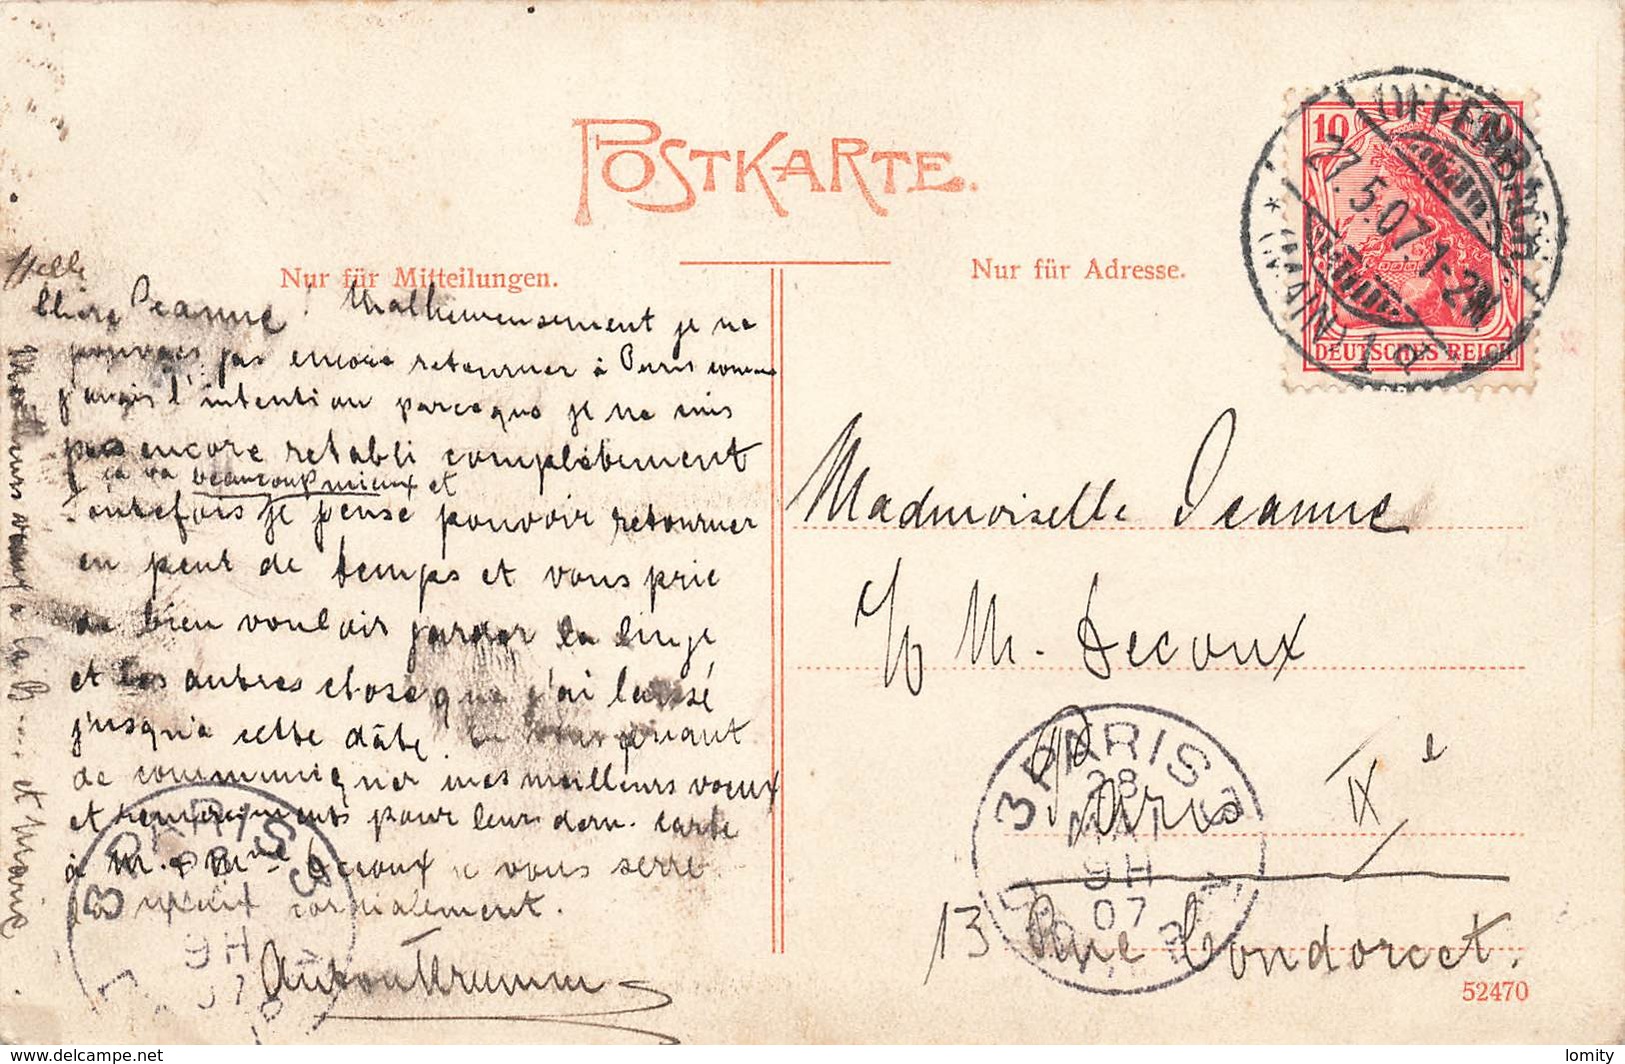 POSTKARTE.
Nur für Mitteilungen.
Nur für Adresse.
OFFENBACH
* (MAIN) 1 d
27.5.07.1-2N.
10 10
DEUTSCHES REICH
Chère Jeanne! Malheureusement je ne
pouvais pas encore retourner à Paris comme
j'avais l'intention parceque je ne suis
pas encore retabli complètement
ça va beaucoup mieux et
Toutefois je pense pouvoir retourner
en peut de temps et vous prie
de bien vouloir garder la linge
et les autres chose que j'ai laissé
jusqu'à cette dâte. En vous priant
de communiquer mes meilleurs voeux
et remerciments pour leur dern. carte
à M. & Mme Decoux je vous serre
la main cordialement.
Meilleurs voeux à la B.... et Marie
Mademoiselle Jeanne
c/o M. Decoux
Paris IXe
13 Rue Condorcet.
PARIS
28
9H
07
PARIS
9H
07
52470
https://www.delcampe.net
lomity